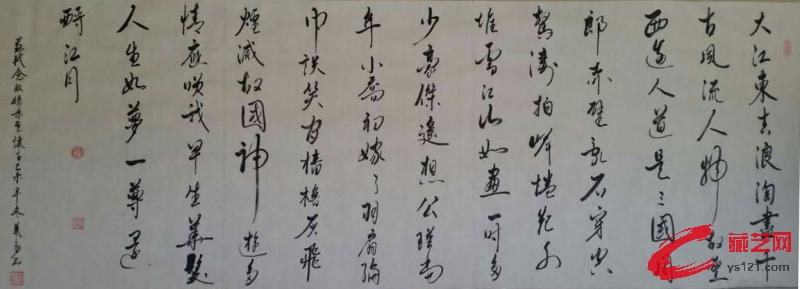 大江東去浪淘盡千
古風流人物故壘
西邊人道是三國周
郎赤壁亂石穿空
驚濤拍岸捲起千
堆雪江山如畫一時多
少豪傑遙想公瑾當
年小喬初嫁了羽扇綸
巾談笑間檣櫓灰飛
煙滅故國神遊多
情應笑我早生華髮
人生如夢一尊還
酹江月
蘇軾念奴嬌赤壁懷古
藏艺网
ys121.com